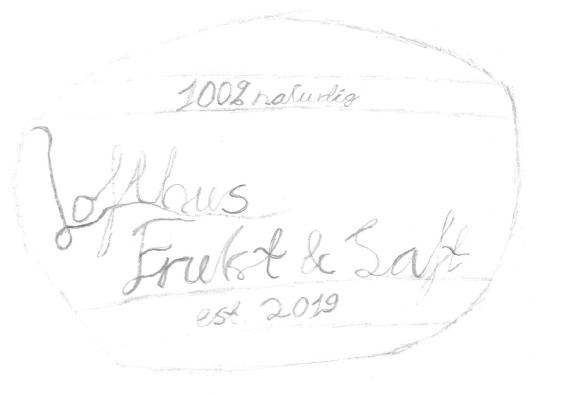 100% naturlig
Lofthus
Frukt & Saft
est. 2019